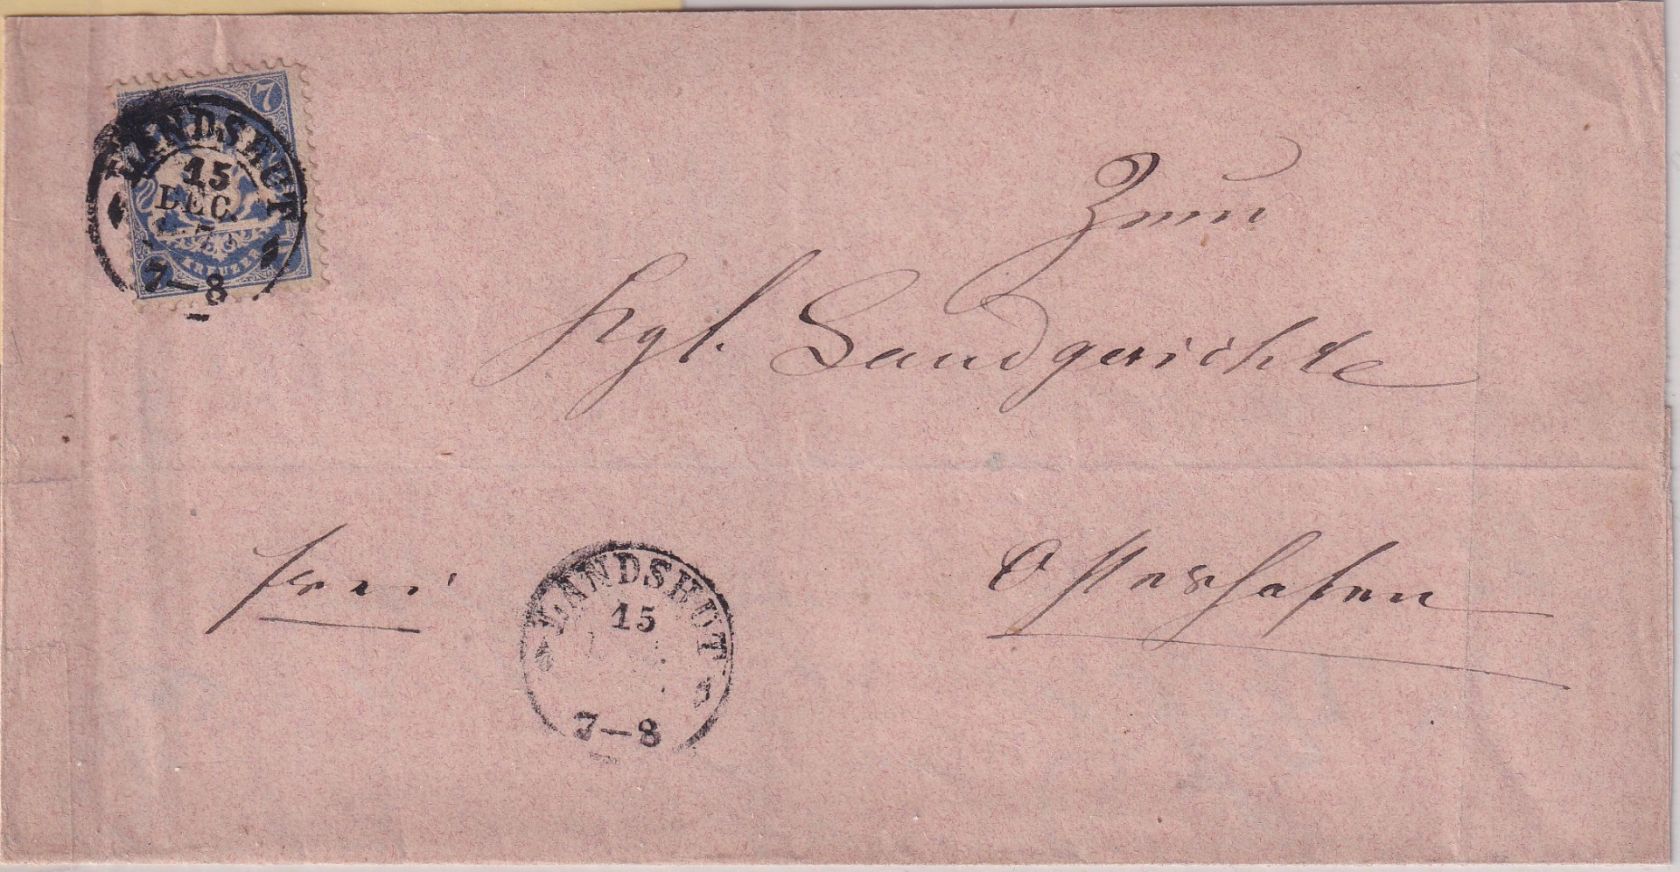 7
KREUZER
LANDSHUT
15
DEC
7—8
Zum
Kgl. Landgerichte
frei
Osterhofen
LANDSHUT
15
7—8